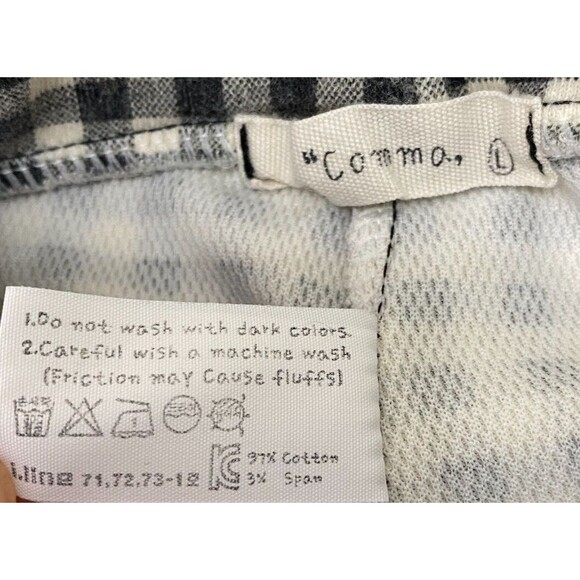 "Comma, L
1.Do not wash with dark colors.
2.Careful wish a machine wash
(Friction may Cause fluffs)
71,72,73-12
97% Cotton
3% Span